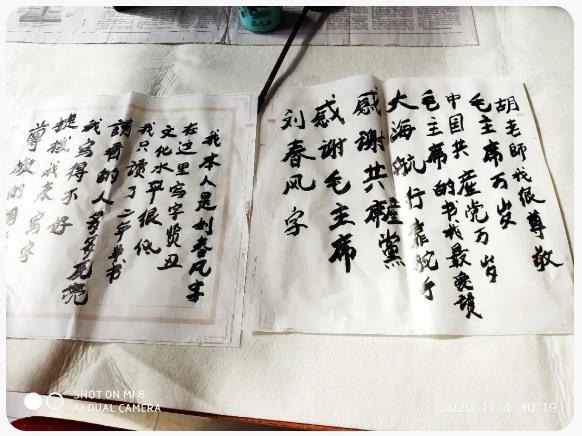 胡老師我很尊敬
毛主席万岁
中国共産党万岁
毛主席的书我最爱讀
大海航行靠舵手
感谢共産黨
感谢毛主席
刘春风字
我本人是刘春风字
在这里写字贤丑
文化水平很低
我只读了二年半书
請看的人多多原諒
我写得不好
提板我来写字
尊敬的
SHOT ON MI 8
AI DUAL CAMERA
2020/11/4 10:19